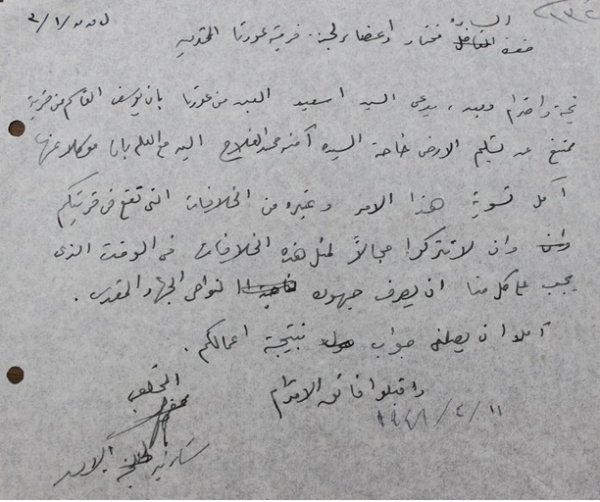 السادة
حضرة مختار واعضاء لجنة قرية عورتا المحترمين
تحية واحترام وبعد، يدعي السيد اسعيد العبد من عورتا بان يوسف القاسم من قرية
ممتنع عن تسليم الارض خاصة السيدة آمنه محمد الفلاح اليه مع العلم بانه موكلا عنها
آمل تسوية هذا الامر وغيره من الخلافات التي تقع في قريتكم
وان لا تتركوا مجالاً لمثل هذه الخلافات في الوقت الذي
يجب على كل منا ان يصرف جهوده لنواحي الجهاد المقدس.
آملا ان يصلني جواب بنتيجة اعمالكم.
واقبلوا فائق الاحترام
١٩٤٨/٢/١١
المخلص